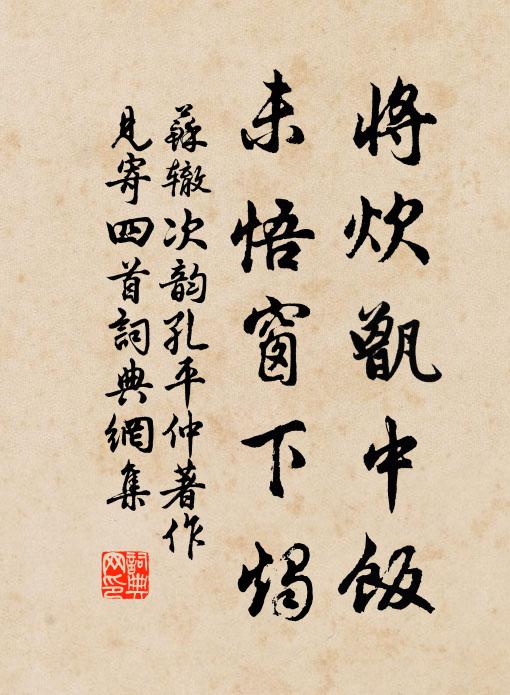 將炊甑中飯
未悟窗下燭
蘇轍次韵孔平仲著作
見寄四首詞典網集
詞典网印